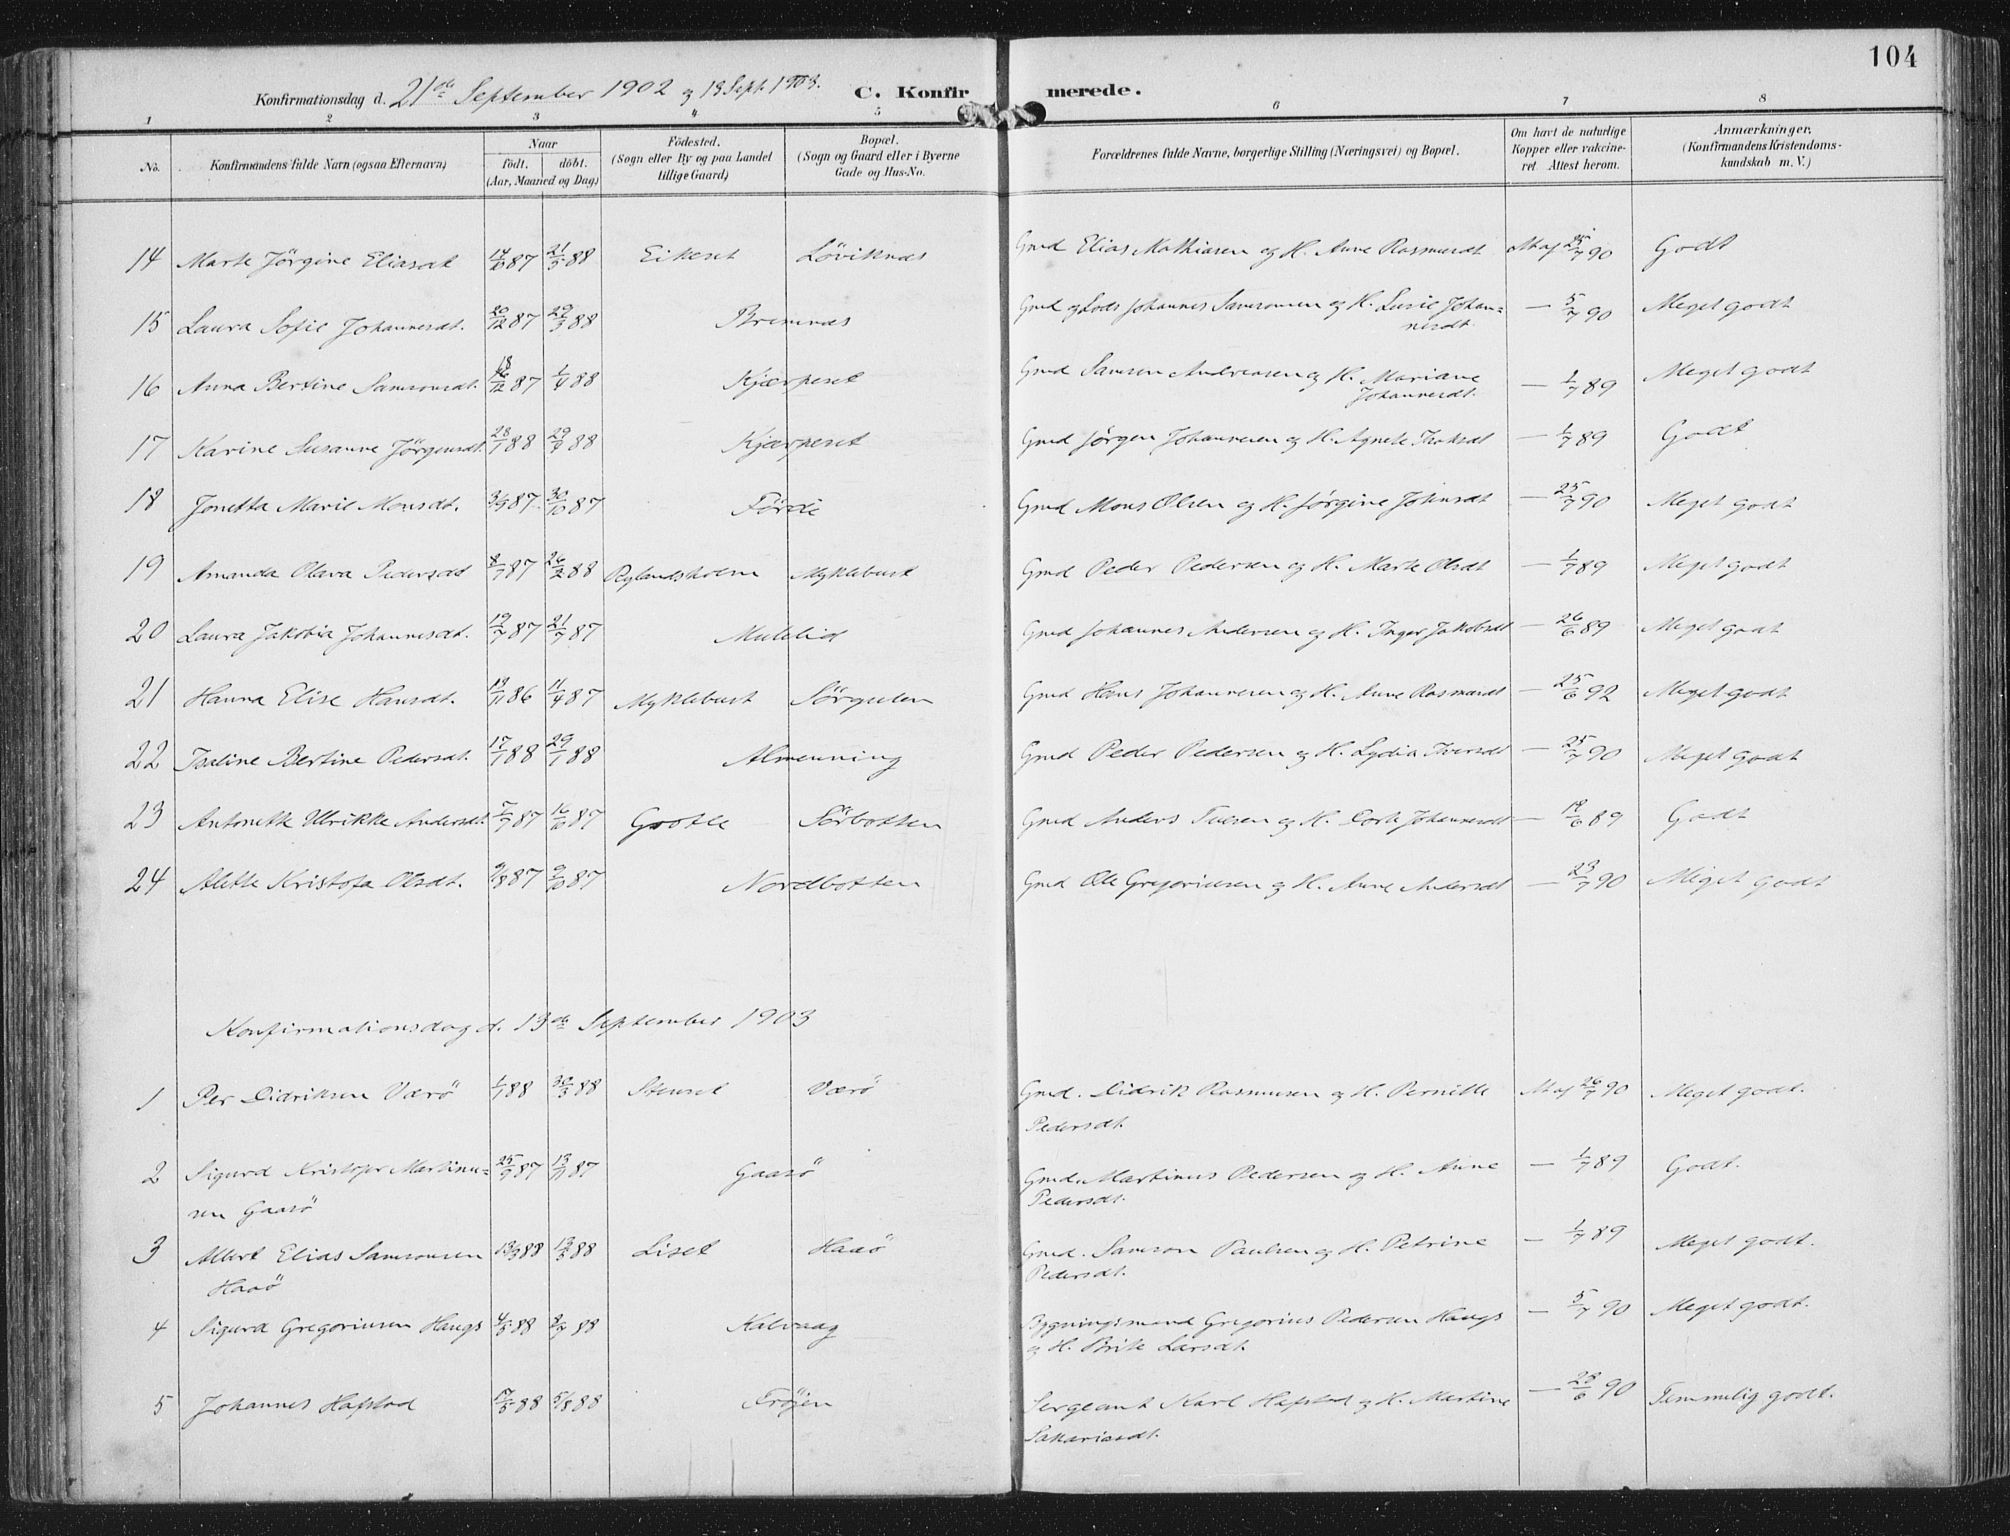 104
Konfirmationsdag d. 21de September 1902 og 13 Sept. 1903. C. Konfirmerede.
1 2 3 4 5 6 7 8
No. Konfirmandens fulde Navn (ogsaa Efternavn) Naar födt. döbt. (Aar, Maaned og Dag) Födested. (Sogn eller By og paa Landet tillige Gaard) Bopæl. (Sogn og Gaard eller i Byerne Gade og Hus-No. Forældrenes fulde Navne, borgerlige Stilling (Næringsvei) og Bopæl. Om havt de naturlige Kopper eller vakcineret. Attest herom. Anmærkninger. (Konfirmandens Kristendomskundskab m. V.)
14 Marte Jörgine Eliasdt 14/10 87 21/5 88 Eikeset Löviknes Gmd Elias Mathiasen og H. Anne Rasmusdt Maj 25/7 90 Godt
15 Laura Sofie Johannesdt. 20/12 87 29/3 88 Bremnes Gmd og Lods Johannes Samsonsen og H. Lusie Johan=
nesdt. — 5/7 90 Meget godt
16 Anna Bertine Samsonsdt. 18/12 87 1/4 88 Kjærpeset Gmd Samson Andreasen og H. Mariane
Johannesdt. — 1/7 89 Meget godt
17 Karine Susanne Jörgensdt. 28/1 88 29/3 88 Kjærpeset Gmd Jörgen Johannesen og H. Agnete — 1/7 89 Godt
18 Jonetta Marie Monsdt. 3/9 87 30/10 87 Förde Gmd Mons Olsen og H. Jörgine Johnsdt — 25/7 90 Meget godt
19 Amanda Olava Pedersdt 8/7 87 26/2 88 Rylandsholm Myklebust Gmd Peder Pedersen og H. Marte Olsdt — 1/7 89 Meget godt
20 Laura Jakobia Johannesdt. 19/7 87 21/7 87 Mulelid Gmd Johannes Andersen og H. Inger Jakobsdt — 26/6 89 Meget godt
21 Hanna Elise Hansdt. 19/11 86 11/4 87 Myklebust Sörgulen Gmd Hans Johannesen og H. Anne Rasmusdt — 25/6 92 Meget godt
22 Isaline Bertine Pedersdt. 17/1 88 29/1 88 Almenning Gmd Peder Pedersen og H. Lydia Iversdt — 25/7 90 Meget godt
23 Antonette Ulrikke Andersdt. 7/9 87 16/10 87 Grotle Sörbotten Gmd Anders og H. Dorte Johannesdt — 18/6 89 Godt
24 Alette Kristofa Olsdt. 9/8 87 9/10 87 Nordbotten Gmd Ole Gregoriusen og H. Anne Andersdt — 23/7 90 Meget godt
Konfirmationsdag d. 13de September 1903
1 Per Didriksen Værö 1/1 88 30/3 88 Stenset Værö Gmd. Didrik Rasmusen og H. Pernille Maj 26/7 90 Meget godt.
Pedersdt.
2 Sigurd Kristofer Martinu= 25/9 87 13/11 87 Gaasö Gmd. Martinus Pedersen og H. Anne — 1/7 89 Godt.
sen Gaasö Pedersdt.
3 Albert Elias Samsonsen 13/3 88 13/5 88 Liset Haaö Gmd. Samson Paulsen og H. Petrine — 1/7 89 Meget godt.
Haaö Pedersdt.
4 Sigurd Gregoriusen Haugs 4/5 88 2/7 88 Kalvaag Bygningsmand Gregorius Pedersen Haugs — 5/7 90 Meget godt.
og H. Brite Larsdt.
5 Johannes Hafstad 17/5 88 5/8 88 Fröjen Sergeant Karl Hafstad og H. Martine — 28/6 90 Temmelig godt.
Sakariasdt.